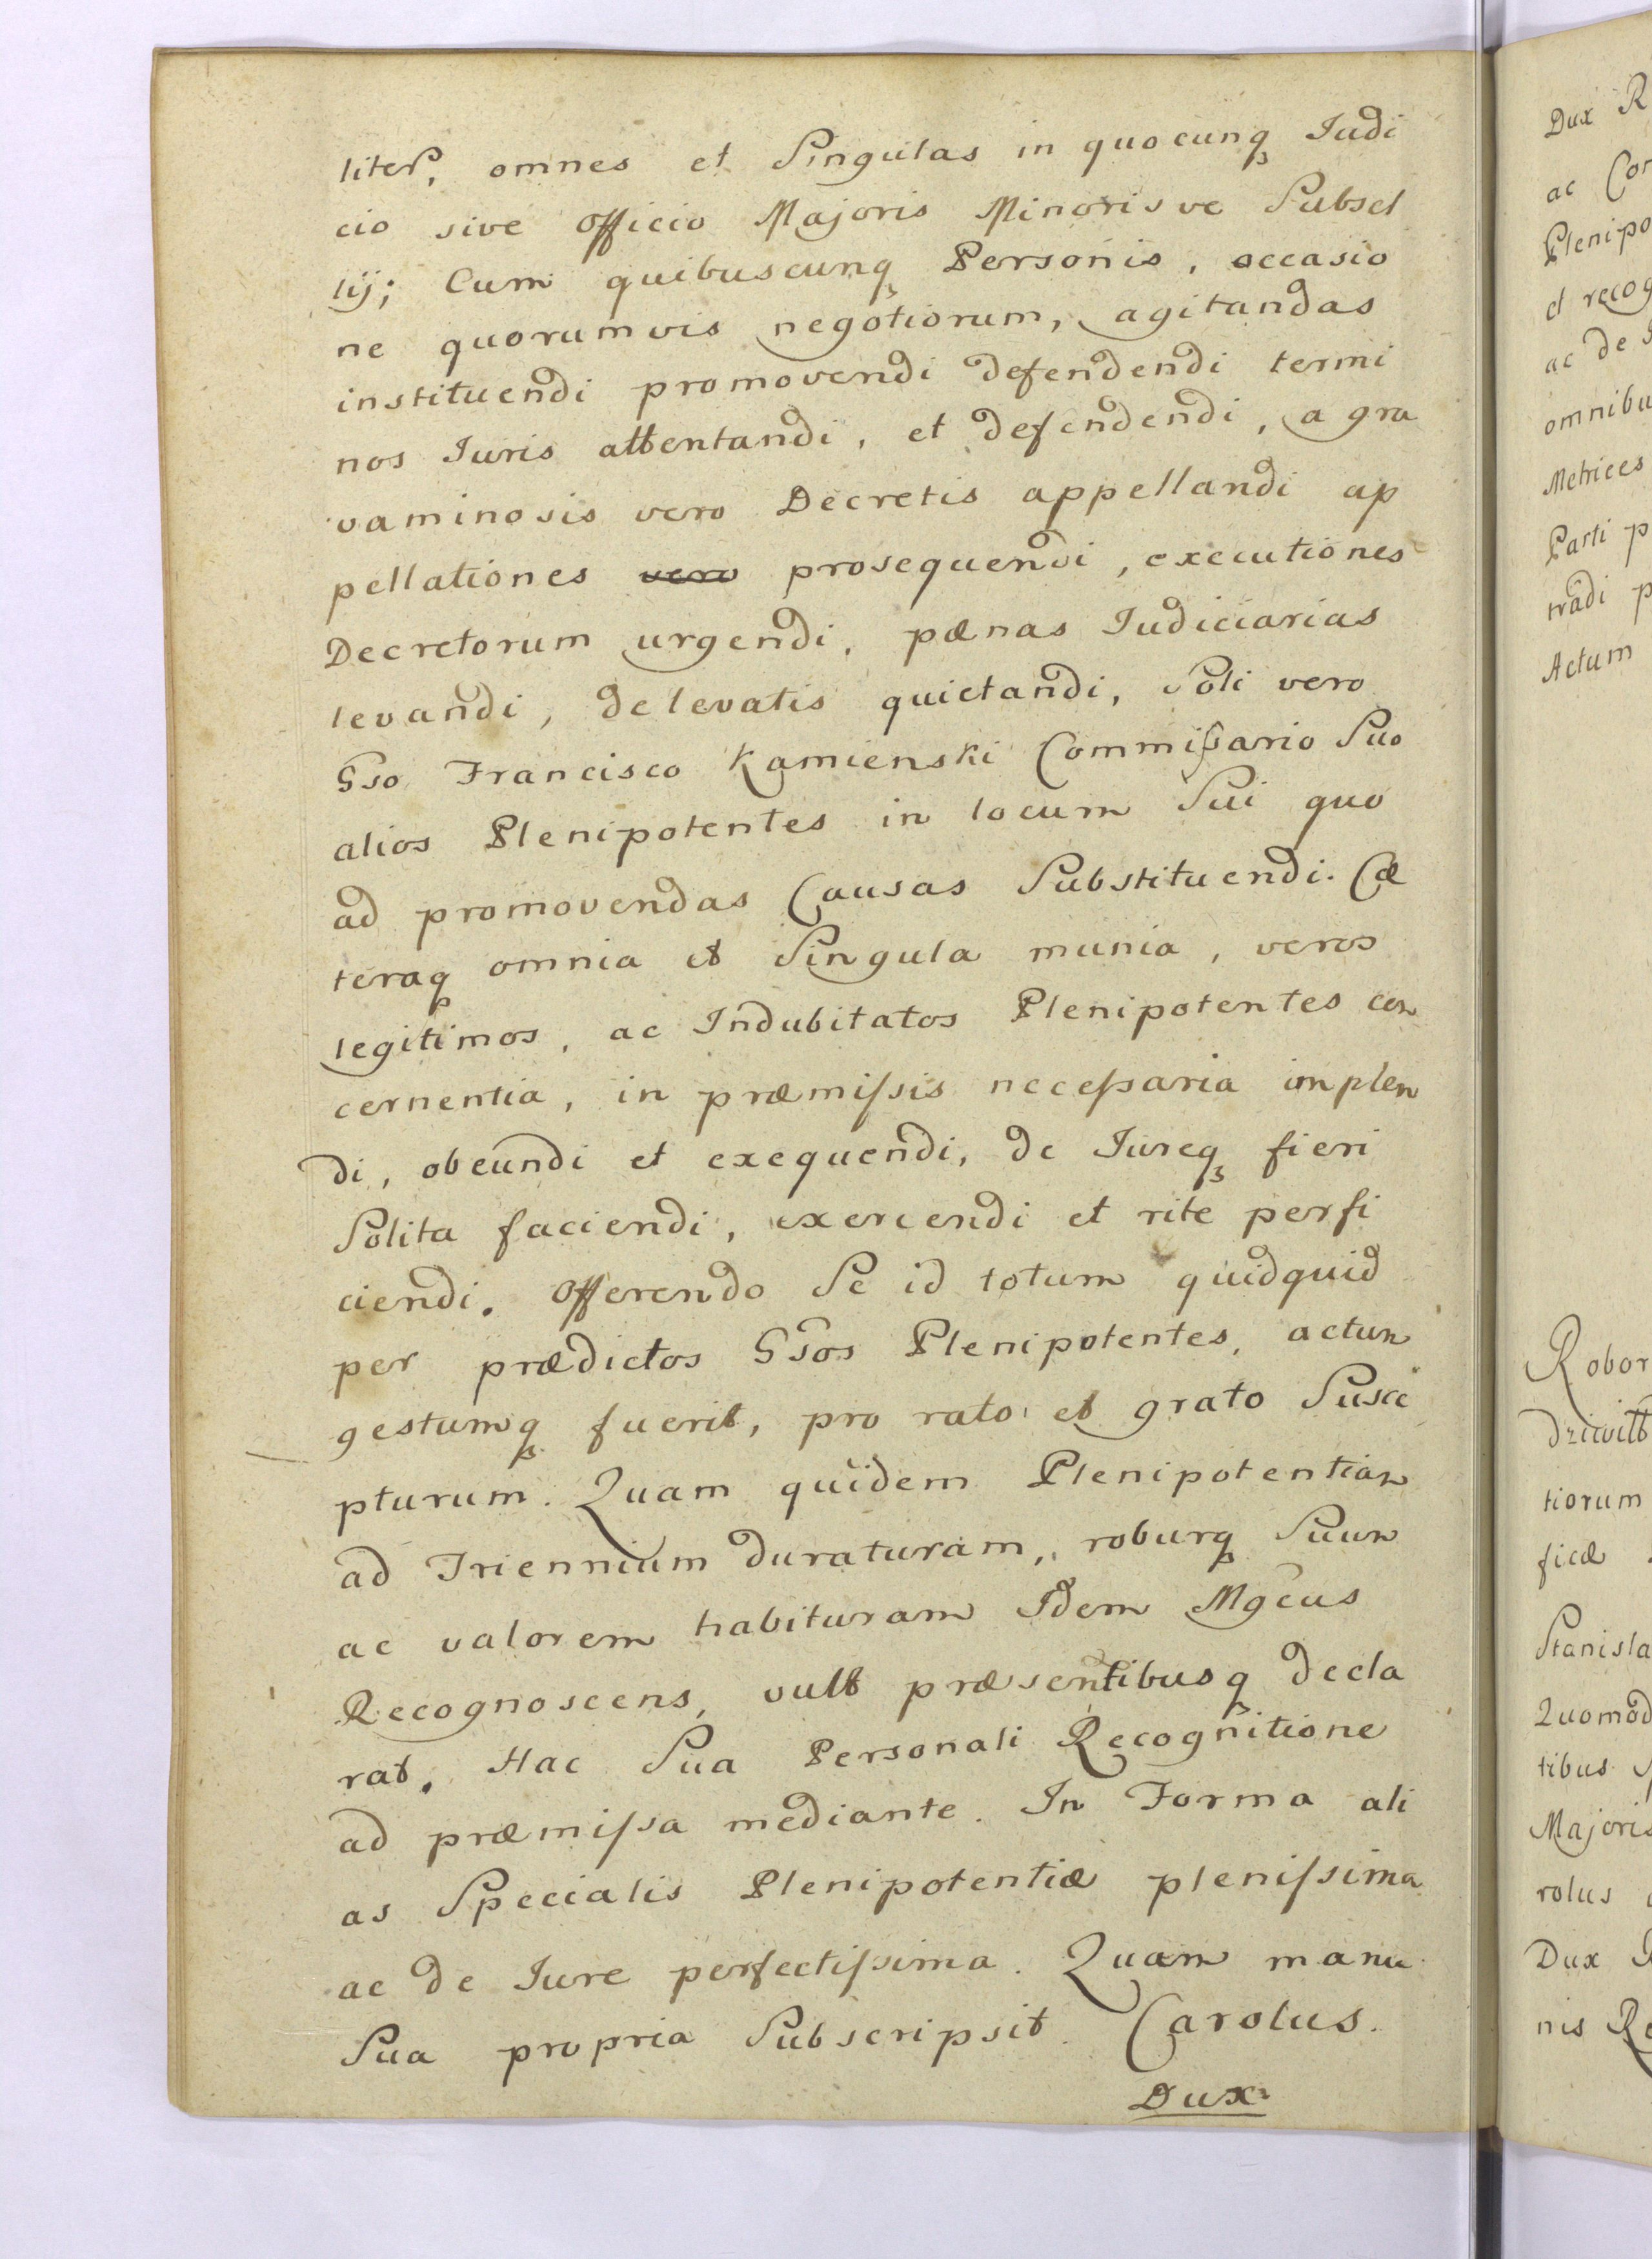 liter, omnes et Singulas in quocunq Iudi
cio sive Officio Majoris Minorisve Subsel
lij; Cum quibuscunq Personis, occasio
ne quorumvis negotiorum, agitandas
instituendi promovendi defendendi termi
nos Iuris attentandi, et defendendi, a gra
vaminosis vero Decretis appellandi ap
pellationes vero prosequendi, executiones
Decretorum urgendi, pænas Iudiciarias
levandi, de levatis quietandi, Soli vero
Gso Francisco Kamienski Commißario Suo
alios Plenipotentes in locum Sui quo
ad promovendas Causas Substituendi. Cæ
teraq omnia et Singula munia, veros
legitimos, ac Indubitatos Plenipotentes con
cernentia, in præmissis necessaria implen
di, obeundi et exequendi, de Iureq fieri
Solita faciendi, exercendi et rite perfi
ciendi. Offerendo Se id totum quidquid
per prædictos Gsos Plenipotentes, actum
gestumq fuerit, pro rato et grato Susce
pturum. Quam quidem Plenipotentiam
ad Triennium duraturam, roburq Suum
ac valorem habituram Idem Mgcus
Recognoscens, vult præsentibusq decla
rat. Hac Sua Personali Recognitione
ad præmissa mediante. In Forma ali
as Specialis Plenipotentiæ plenissima
ac de Iure perfectissima. Quam manu
Sua propria Subscripsit. Carolus.
Dux
Dux R
ac Con
Plenipo
et recog
ac de
omnibu
Metrices
Parti p
tradi p
Actum
Robor
tiorum
ficæ
Stanisla
Quomod
tibus
Majoris
rolus
Dux
nis Re